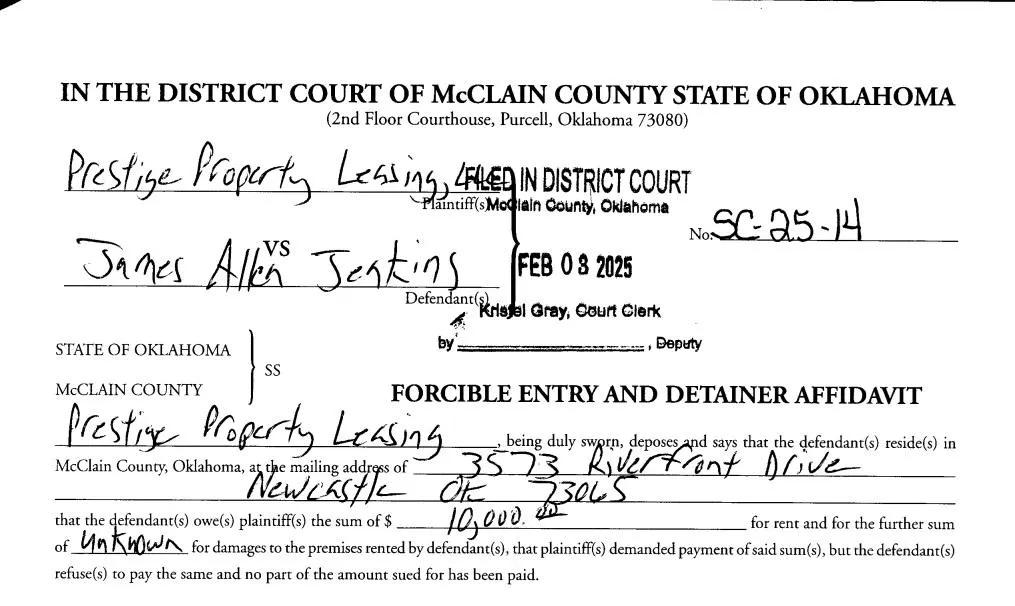 IN THE DISTRICT COURT OF McCLAIN COUNTY STATE OF OKLAHOMA
(2nd Floor Courthouse, Purcell, Oklahoma 73080)
Prestige Property Leasing,
FILED IN DISTRICT COURT
Plaintiff(s)
McClain County, Oklahoma
No. SC-25-14
VS
James Allen Jenkins
FEB 03 2025
Defendant(s)
Kristel Gray, Court Clerk
by , Deputy
STATE OF OKLAHOMA
SS
McCLAIN COUNTY
FORCIBLE ENTRY AND DETAINER AFFIDAVIT
Prestige Property Leasing , being duly sworn, deposes and says that the defendant(s) reside(s) in
McClain County, Oklahoma, at the mailing address of 3573 Riverfront Drive
Newcastle OK 73065
that the defendant(s) owe(s) plaintiff(s) the sum of $ 10,000.00 for rent and for the further sum
of Unknown for damages to the premises rented by defendant(s), that plaintiff(s) demanded payment of said sum(s), but the defendant(s)
refuse(s) to pay the same and no part of the amount sued for has been paid.